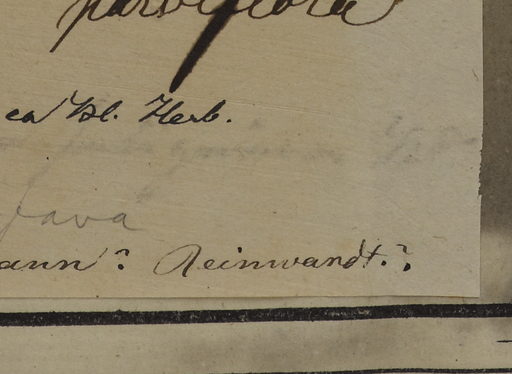 parviflora
ea Bl. Herb.
Java
ann? Reinwardt.?